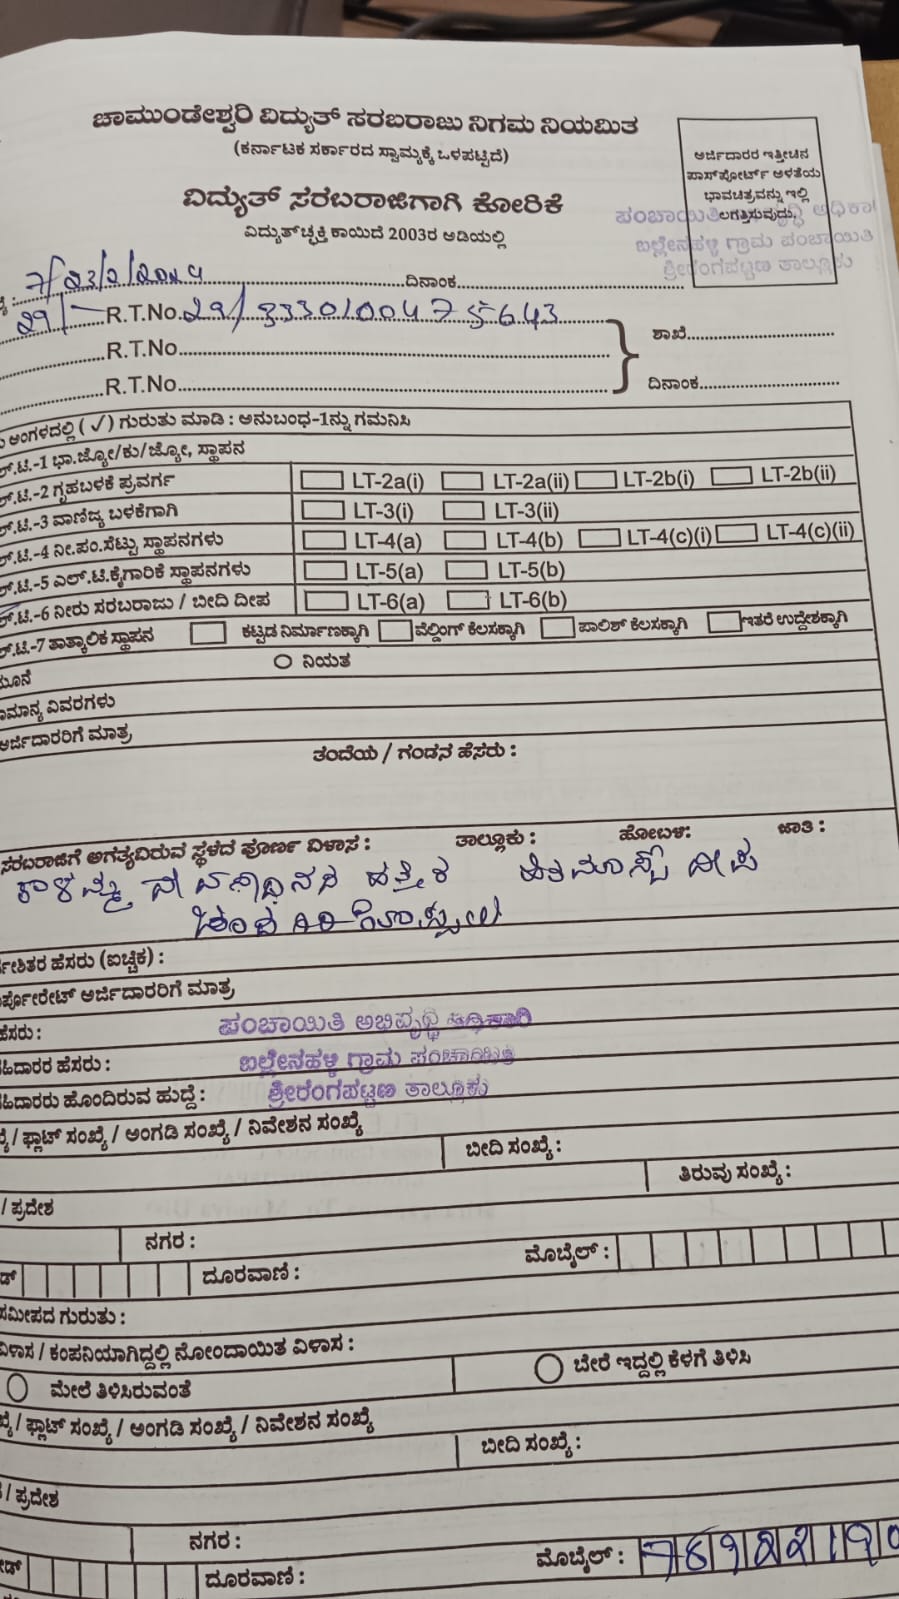 ಚಾಮುಂಡೇಶ್ವರಿ ವಿದ್ಯುತ್ ಸರಬರಾಜು ನಿಗಮ ನಿಯಮಿತ
(ಕರ್ನಾಟಕ ಸರ್ಕಾರದ ಸ್ವಾಮ್ಯಕ್ಕೆ ಒಳಪಟ್ಟಿದೆ)
ಅರ್ಜಿದಾರರ ಇತ್ತೀಚಿನ
ಪಾಸ್‌ಪೋರ್ಟ್ ಅಳತೆಯ
ಭಾವಚಿತ್ರವನ್ನು ಇಲ್ಲಿ
ಲಗತ್ತಿಸುವುದು.
ವಿದ್ಯುತ್ ಸರಬರಾಜಿಗಾಗಿ ಕೋರಿಕೆ
ವಿದ್ಯುತ್‌ಚ್ಛಕ್ತಿ ಕಾಯಿದೆ 2003ರ ಅಡಿಯಲ್ಲಿ
ಪಂಚಾಯಿತಿ ಅಧಿಕಾ
ಬಲ್ಲೇನಹಳ್ಳಿ ಗ್ರಾಮ ಪಂಚಾಯಿತಿ
ಶ್ರೀರಂಗಪಟ್ಟಣ ತಾಲ್ಲೂಕು
7/23/2/2024 ದಿನಾಂಕ
29/ R.T.No. 29/33301004755643
R.T.No
R.T.No
ಶಾಖೆ
ದಿನಾಂಕ
ಅಂಗಳದಲ್ಲಿ (✓) ಗುರುತು ಮಾಡಿ : ಅನುಬಂಧ-1ನ್ನು ಗಮನಿಸಿ
.ಟಿ.-1 ಭಾ.ಜ್ಯೋ/ಕು/ಜ್ಯೋ, ಸ್ಥಾಪನ
.ಟಿ.-2 ಗೃಹಬಳಕೆ ಪ್ರವರ್ಗ LT-2a(i) LT-2a(ii) LT-2b(i) LT-2b(ii)
.ಟಿ.-3 ವಾಣಿಜ್ಯ ಬಳಕೆಗಾಗಿ LT-3(i) LT-3(ii)
.ಟಿ.-4 ನೀ.ಪಂ.ಸೆಟ್ಟು ಸ್ಥಾಪನಗಳು LT-4(a) LT-4(b) LT-4(c)(i) LT-4(c)(ii)
.ಟಿ.-5 ಎಲ್.ಟಿ.ಕೈಗಾರಿಕೆ ಸ್ಥಾಪನಗಳು LT-5(a) LT-5(b)
.ಟಿ.-6 ನೀರು ಸರಬರಾಜು / ಬೀದಿ ದೀಪ LT-6(a) LT-6(b)
.ಟಿ.-7 ತಾತ್ಕಾಲಿಕ ಸ್ಥಾಪನ ಕಟ್ಟಡ ನಿರ್ಮಾಣಕ್ಕಾಗಿ ವೆಲ್ಡಿಂಗ್ ಕೆಲಸಕ್ಕಾಗಿ ಪಾಲಿಶ್ ಕೆಲಸಕ್ಕಾಗಿ ಇತರೆ ಉದ್ದೇಶಕ್ಕಾಗಿ
ನಿಯತ
ಮಾನ್ಯ ವಿವರಗಳು
ಅರ್ಜಿದಾರರಿಗೆ ಮಾತ್ರ
ತಂದೆಯ / ಗಂಡನ ಹೆಸರು :
ಸರಬರಾಜಿಗೆ ಅಗತ್ಯವಿರುವ ಸ್ಥಳದ ಪೂರ್ಣ ವಿಳಾಸ : ತಾಲ್ಲೂಕು : ಹೋಬಳಿ: ಜಾತಿ :
ಕಾಳಮ್ಮ ಹತ್ತಿರ ಹೈಮಾಸ್ಟ್ ದೀಪ
ಶಿತರ ಹೆಸರು (ಐಚ್ಛಿಕ) :
ರ್ಪೋರೇಟ್ ಅರ್ಜಿದಾರರಿಗೆ ಮಾತ್ರ
ಹೆಸರು : ಪಂಚಾಯಿತಿ ಅಭಿವೃದ್ಧಿ ಅಧಿಕಾರಿ
ಹಿದಾರರ ಹೆಸರು : ಬಲ್ಲೇನಹಳ್ಳಿ ಗ್ರಾಮ ಪಂಚಾಯಿತಿ
ಹಿದಾರರು ಹೊಂದಿರುವ ಹುದ್ದೆ : ಶ್ರೀರಂಗಪಟ್ಟಣ ತಾಲ್ಲೂಕು
/ ಫ್ಲಾಟ್ ಸಂಖ್ಯೆ / ಅಂಗಡಿ ಸಂಖ್ಯೆ / ನಿವೇಶನ ಸಂಖ್ಯೆ
ಬೀದಿ ಸಂಖ್ಯೆ :
/ ಪ್ರದೇಶ ತಿರುವು ಸಂಖ್ಯೆ :
ನಗರ :
ದೂರವಾಣಿ : ಮೊಬೈಲ್ :
ಸಮೀಪದ ಗುರುತು :
ವಿಳಾಸ / ಕಂಪನಿಯಾಗಿದ್ದಲ್ಲಿ ನೋಂದಾಯಿತ ವಿಳಾಸ :
ಮೇಲೆ ತಿಳಿಸಿರುವಂತೆ ಬೇರೆ ಇದ್ದಲ್ಲಿ ಕೆಳಗೆ ತಿಳಿಸಿ
/ ಫ್ಲಾಟ್ ಸಂಖ್ಯೆ / ಅಂಗಡಿ ಸಂಖ್ಯೆ / ನಿವೇಶನ ಸಂಖ್ಯೆ
ಬೀದಿ ಸಂಖ್ಯೆ :
/ ಪ್ರದೇಶ
ನಗರ :
ದೂರವಾಣಿ : ಮೊಬೈಲ್ :